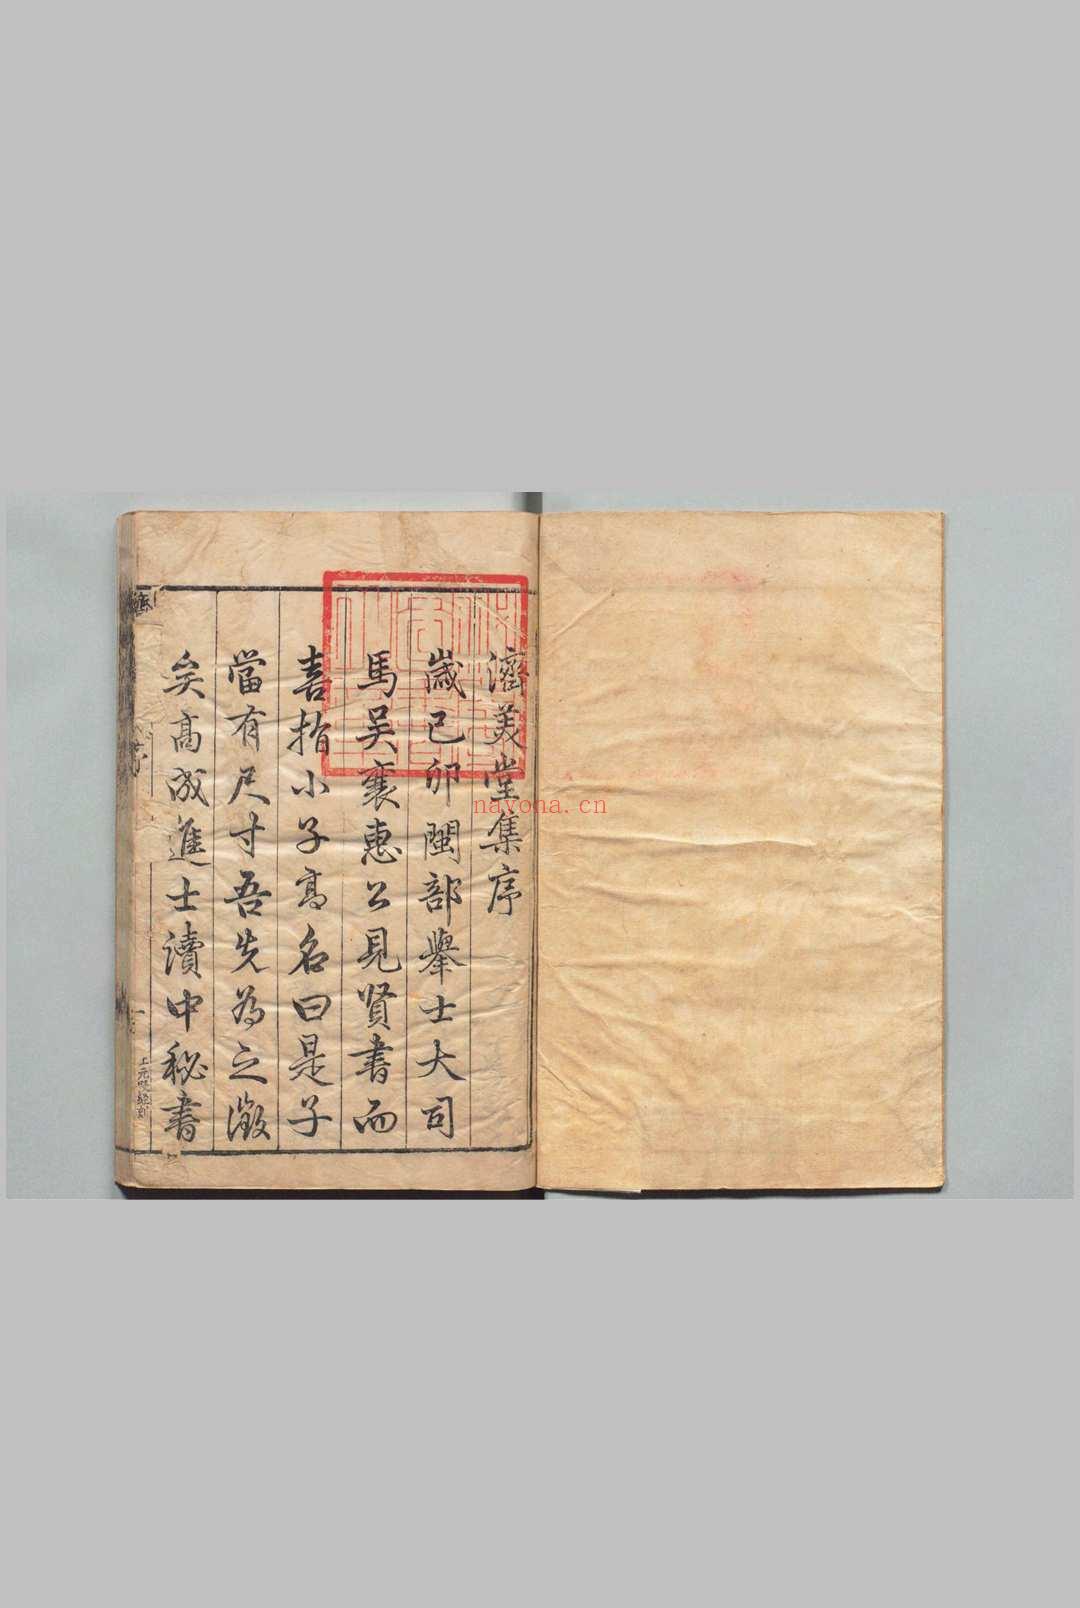 濟美堂集序
歲己卯閩部舉士大司
馬吳襄惠公見賢書而
喜指小子高名曰是子
當有尺寸吾先為之徵
矣高成進士讀中秘書
nayona.cn